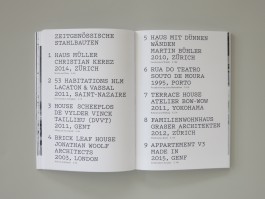 ZEITGENÖSSISCHE
STAHLBAUTEN
1 HAUS MÜLLER
CHRISTIAN KEREZ
2014, ZÜRICH
2 53 HABITATIONS HLM
LACATON & VASSAL
2011, SAINT-NAZAIRE
3 HOUSE SCHEEPLOS
DE VYLDER VINCK
TAILLIEU (DVVT)
2011, GENT
4 BRICK LEAF HOUSE
JONATHAN WOOLF
ARCHITECTS
2003, LONDON
5 HAUS MIT DÜNNEN
WÄNDEN
MARTIN BÜHLER
2010, ZÜRICH
6 RUA DO TEATRO
SOUTO DE MOURA
1995, PORTO
7 TERRACE HOUSE
ATELIER BOW-WOW
2011, YOKOHAMA
8 FAMILIENWOHNHAUS
GRABER ARCHITEKTEN
2012, ZÜRICH
9 APPARTEMENT V3
MADE IN
2015, GENF